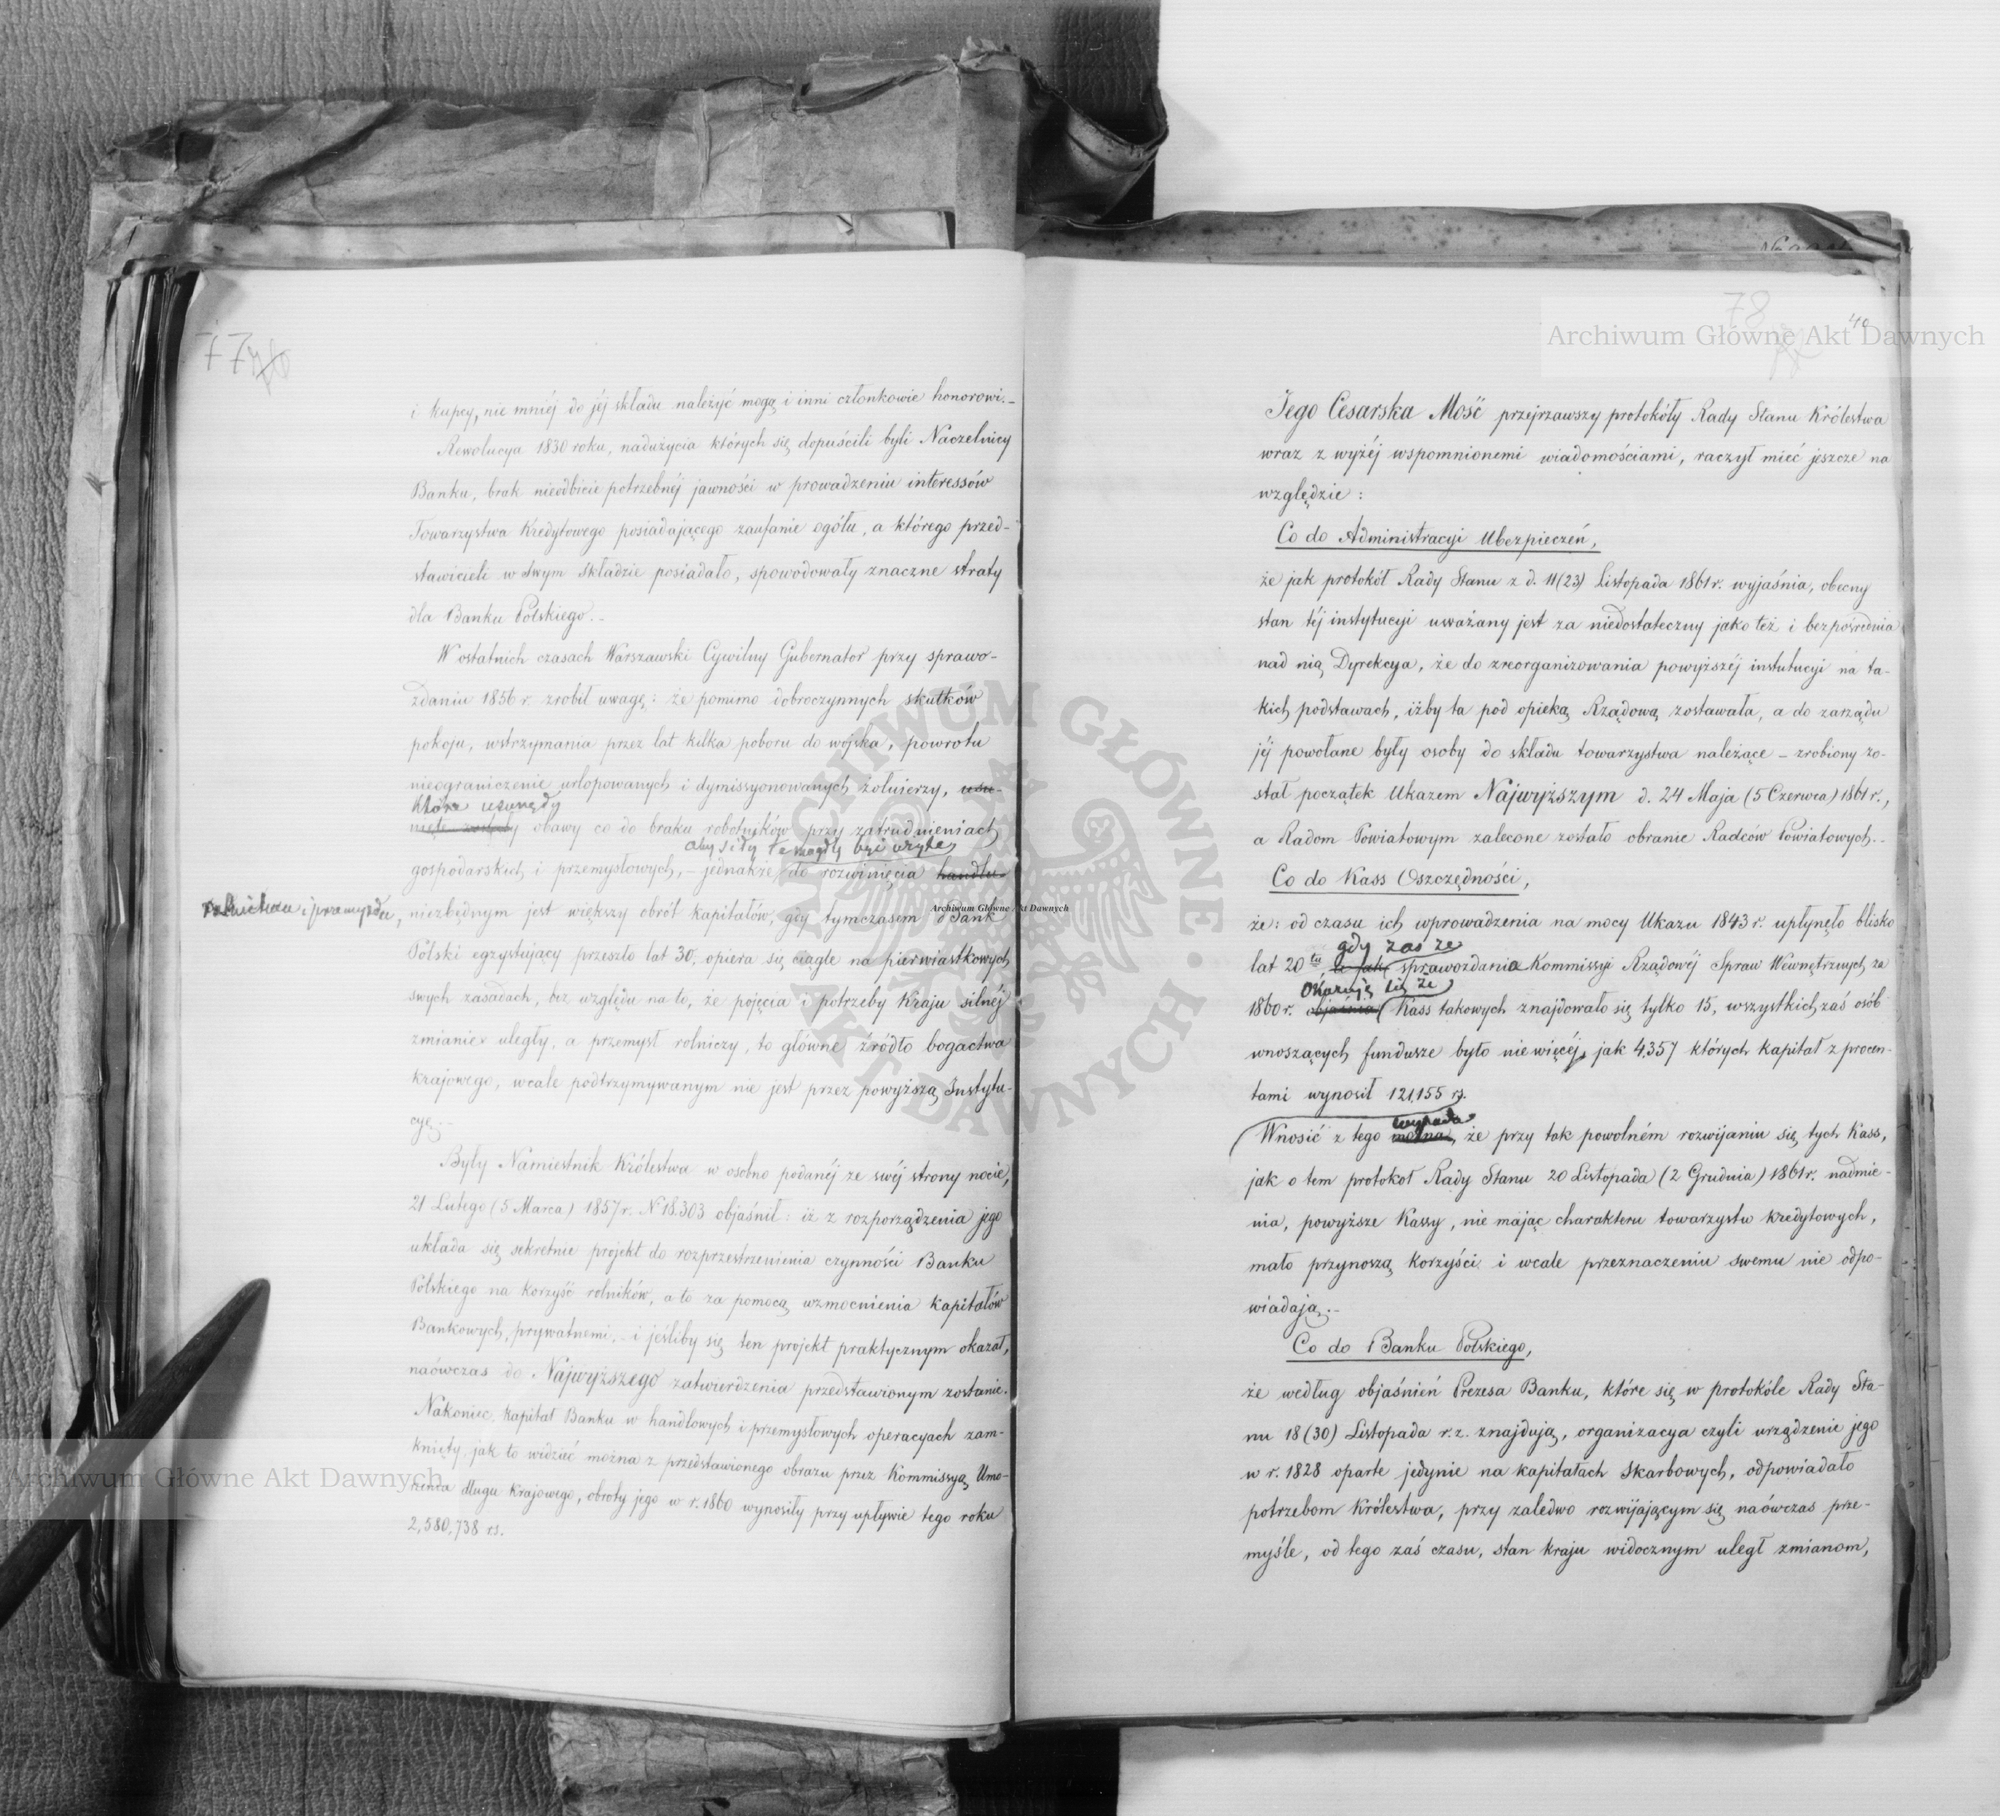 77
i kupcy, nie mniéj do jéj składu należyć mogą i inni członkowie honorowi.–
Rewolucya 1830 roku, nadużycia których się dopuścili byli Naczelnicy
Banku, brak nieodbicie potrzebnéj jawności w prowadzeniu interessów
Towarzystwa Kredytowego posiadającego zaufanie ogółu, a którego przed-
stawicieli w swym składzie posiadało, spowodowały znaczne straty
dla Banku Polskiego.–
W ostatnich czasach Warszawski Cywilny Gubernator przy sprawo-
zdaniu 1856 r. zrobił uwagę: że pomimo dobroczynnych skutków
pokoju, wstrzymania przez lat kilka poboru do wojska, powrotu
nieograniczenie urlopowanych i dymissyonowanych żołnierzy, usu-
które usunęły
nięte zostały obawy co do braku robotników przy zatrudnieniach
aby siły te mogły być użyte
gospodarskich i przemysłowych, – jednakże do rozwinięcia handlu
rolnictwa i przemysłu,
niezbędnym jest większy obrót kapitałów, gdy tymczasem Bank
Polski egzystujący przeszło lat 30, opiera się ciągle na pierwiastkowych
swych zasadach, bez względu na to, że pojęcia i potrzeby Kraju silnéj
zmianie uległy, a przemysł rolniczy, to główne źródło bogactwa
krajowego, wcale podtrzymywanym nie jest przez powyższą Instytu-
cyę.–
Były Namiestnik Królestwa w osobno podanéj ze swéj strony nocie,
21 Lutego (5 Marca) 1857 r. N 18.303 objaśnił: iż z rozporządzenia jego
układa się sekretnie projekt do rozprzestrzenienia czynności Banku
Polskiego na korzyść rolników, a to za pomocą wzmocnienia kapitałów
Bankowych, prywatnemi, – i jeśliby się ten projekt praktycznym okazał,
naówczas do Najwyższego zatwierdzenia przedstawionym zostanie.
Nakoniec, kapitał Banku w handlowych i przemysłowych operacyach zam-
knięty, jak to widzieć można z przedstawionego obrazu przez Kommissyą Umo-
rzenia długu krajowego, obroty jego w r. 1860 wynosiły przy upływie tego roku
2,580,738 rs.
78
40
Jego Cesarska Mość przejrzawszy protokóły Rady Stanu Królestwa
wraz z wyżéj wspomnionemi wiadomościami, raczył mieć jeszcze na
względzie:
Co do Administracyi Ubezpieczeń,
że jak protokół Rady Stanu z d. 11 (23) Listopada 1861 r. wyjaśnia, obecny
stan téj instytucyi uważany jest za niedostateczny jako też i bezpośrednia
nad nią Dyrekcya, że do zreorganizowania powyższéj intutucyi na ta-
kich podstawach, iżby ta pod opieką Rządową zostawała, a do zarządu
jéj powołane były osoby do składu towarzystwa należące – zrobiony zo-
stał początek Ukazem Najwyższym d. 24 Maja (5 Czerwca) 1861 r.,
a Radom Powiatowym zalecone zostało obranie Radców Powiatowych.–
Co do Kass Oszczędności,
że: od czasu ich wprowadzenia na mocy Ukazu 1843 r. upłynęło blisko
gdy zaś ze
lat 20tu a jak sprawozdania Kommissyi Rządowéj Spraw Wewnętrznych za
okazuje się że
1860 r. objaśnia Kass takowych znajdowało się tylko 15, wszystkich zaś osób
wnoszących fundusze było nie więcéj, jak 4,357 których kapitał z procen-
tami wynosił 121,155 rs.
wypada
Wnosić z tego można, że przy tak powolném rozwijaniu się tych Kass,
jak o tem protokoł Rady Stanu 20 Listopada (2 Grudnia) 1861 r. nadmie-
nia, powyższe Kassy, nie mając charakteru towarzystw kredytowych,
mało przynoszą korzyści i wcale przeznaczeniu swemu nie odpo-
wiadają.–
Co do Banku Polskiego,
że według objaśnień Prezesa Banku, które się w protokóle Rady Sta-
nu 18 (30) Listopada r. z. znajdują, organizacya czyli urządzenie jego
w r. 1828 oparte jedynie na kapitałach skarbowych, odpowiadało
potrzebom Królestwa, przy zaledwo rozwijającym się naówczas prze-
myśle, od tego zaś czasu, stan kraju widocznym uległ zmianom,
Archiwum Główne Akt Dawnych
Archiwum Główne Akt Dawnych
Archiwum Główne Akt Dawnych
ARCHIWUM GŁÓWNE AKT DAWNYCH